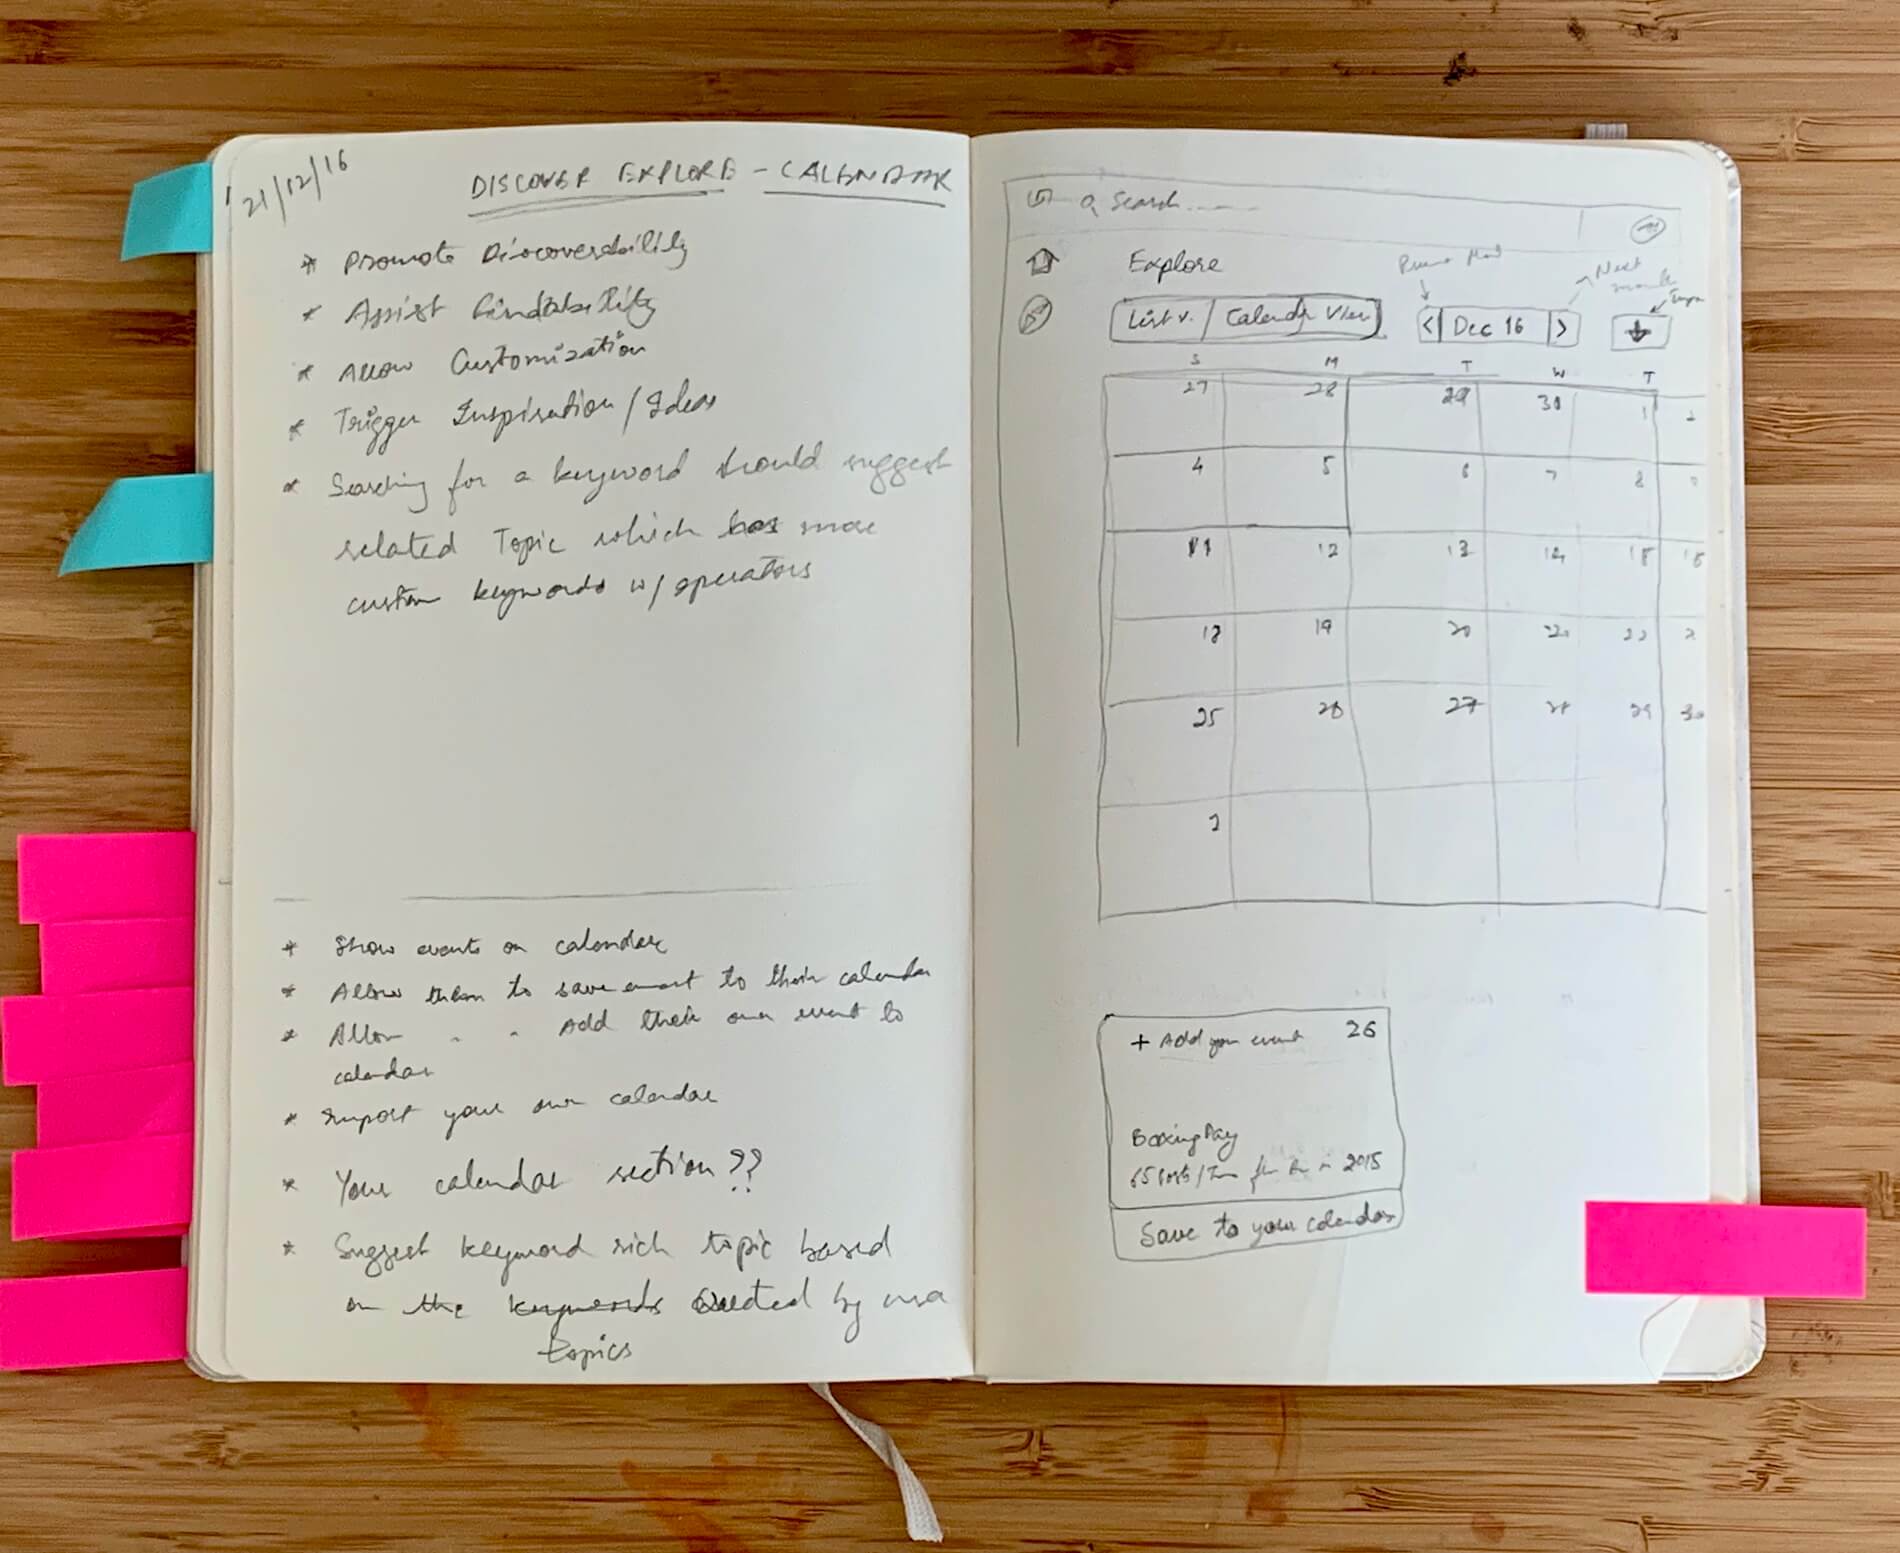 21/12/16
DISCOVER EXPLORE - CALENDAR
* Promote Discoverability
* Assist Findability
* Allow Customization
* Trigger Inspiration / Ideas
* Searching for a keyword should suggest
related Topic which has more
custom keywords w/ operators
* Show events on calendar
* Allow them to save event to their calendar
* Allow " " Add their own event to
calendar
* Import your own calendar
* Your calendar section??
* Suggest keyword rich topic based
on the keywords created by
topics
Search.....
Explore
Next
month
List v. / Calendar View
< Dec 16 >
S M T W T
27 28 29 30 1 2
4 5 6 7 8
11 12 13 14 15 16
18 19 20 22
25 26 27 28 29 30
+ Add your event 26
Boxing Day
2015
Save to your calendar